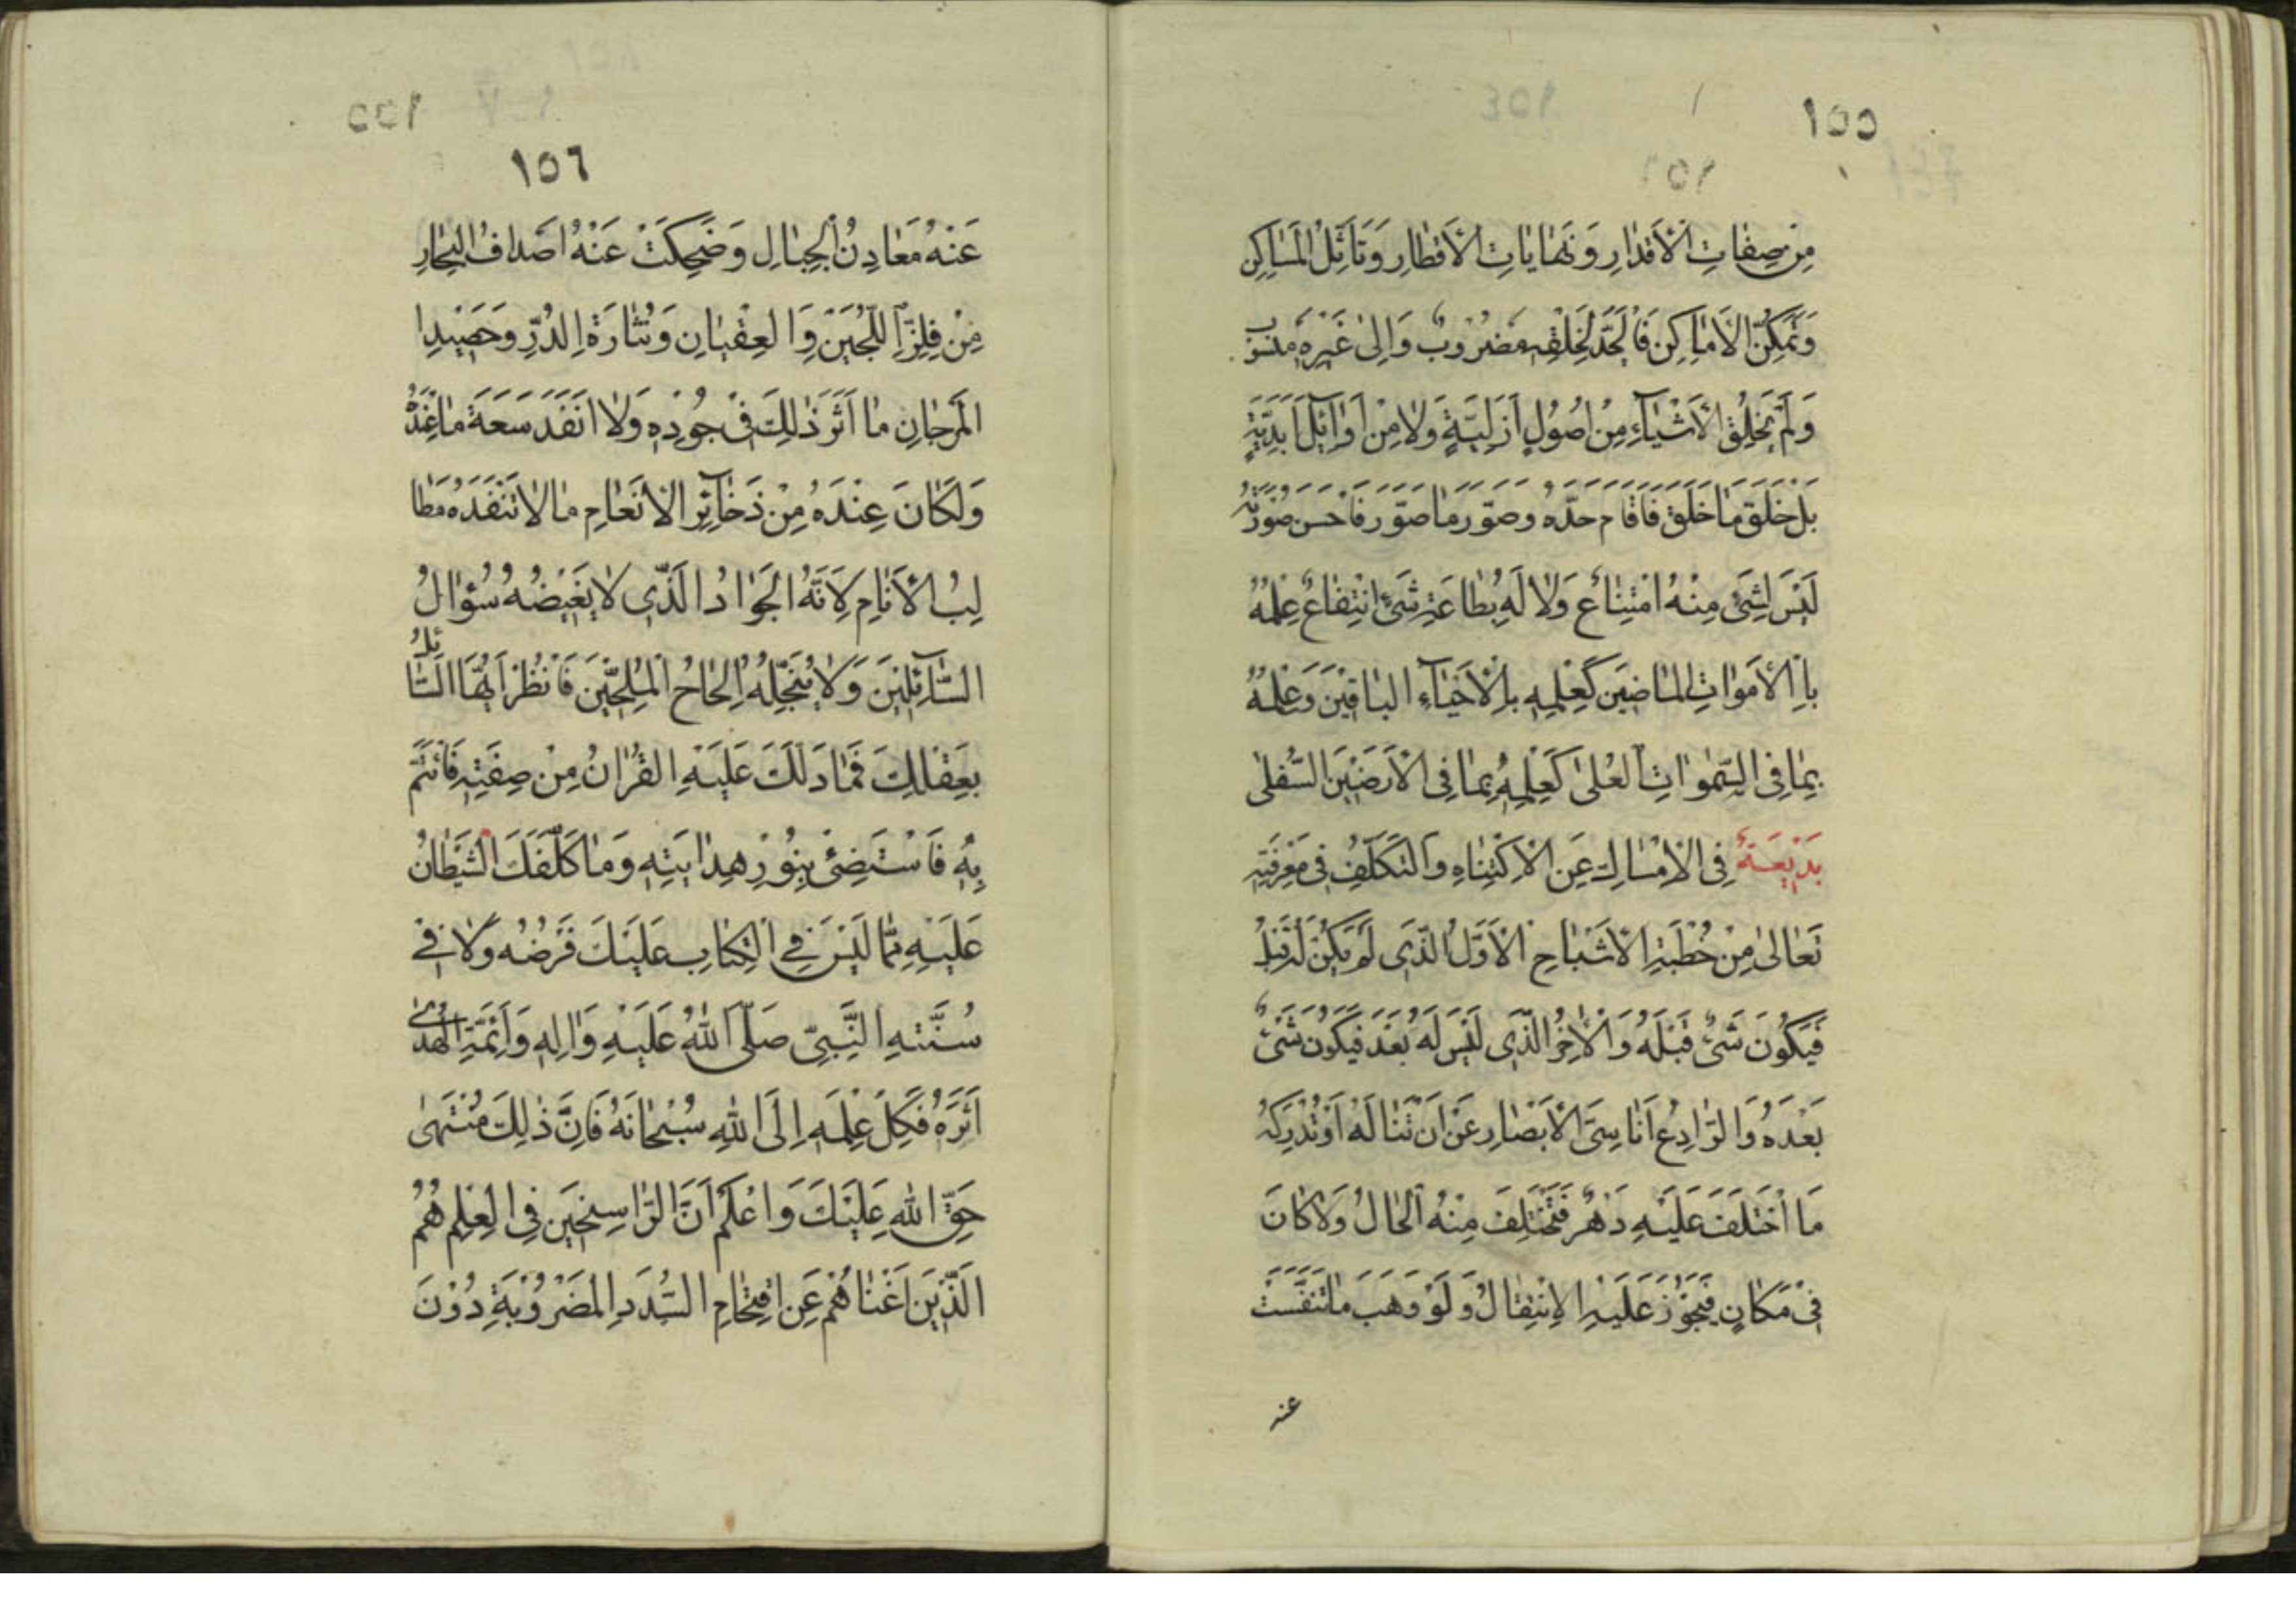 ١٥٥
مِنْ صِفَاتِ الْأَقْدَارِ وَنَهَايَاتِ الْأَقْطَارِ وَتَأَثُّلِ الْمَسَاكِنِ
وَتَمَكُّنِ الْأَمَاكِنِ فَالْحَدُّ لِخَلْقِهِ مَضْرُوبٌ وَإِلَى غَيْرِهِ مَنْسُوبٌ
وَلَمْ يَخْلُقِ الْأَشْيَاءَ مِنْ أُصُولٍ أَزَلِيَّةٍ وَلَا مِنْ أَوَائِلَ أَبَدِيَّةٍ
بَلْ خَلَقَ مَا خَلَقَ فَأَقَامَ حَدَّهُ وَصَوَّرَ مَا صَوَّرَ فَأَحْسَنَ صُورَتَهُ
لَيْسَ لِشَيْءٍ مِنْهُ امْتِنَاعٌ وَلَا لَهُ بِطَاعَةِ شَيْءٍ انْتِفَاعٌ عِلْمُهُ
بِالْأَمْوَاتِ الْمَاضِينَ كَعِلْمِهِ بِالْأَحْيَاءِ الْبَاقِينَ وَعِلْمُهُ
بِمَا فِي السَّمٰوَاتِ الْعُلَى كَعِلْمِهِ بِمَا فِي الْأَرَضِينَ السُّفْلَى
بَدِيعَةٌ فِي الْإِمْسَاكِ عَنِ الْاِكْتِنَاهِ وَالتَّكَلُّفِ فِي مَعْرِفَتِهِ
تَعَالَى مِنْ خُطْبَةِ الْأَشْبَاحِ الْأَوَّلُ الَّذِي لَمْ يَكُنْ لَهُ قَبْلُ
فَيَكُونَ شَيْءٌ قَبْلَهُ وَالْآخِرُ الَّذِي لَيْسَ لَهُ بَعْدَ فَيَكُونَ شَيْءٌ
بَعْدَهُ وَالرَّادِعُ أَنَاسِيَّ الْأَبْصَارِ عَنْ أَنْ تَنَالَهُ أَوْ تُدْرِكَهُ
مَا اخْتَلَفَ عَلَيْهِ دَهْرٌ فَتَخْتَلِفَ مِنْهُ الْحَالُ وَلَا كَانَ
فِي مَكَانٍ فَيَجُوزَ عَلَيْهِ الْاِنْتِقَالُ وَلَوْ وَهَبَ مَا تَنَفَّسَتْ
عنه
١٥٦
عَنْهُ مَعَادِنُ الْجِبَالِ وَضَحِكَتْ عَنْهُ أَصْدَافُ الْبِحَارِ
مِنْ فِلِزِّ اللُّجَيْنِ وَالْعِقْيَانِ وَنُثَارَةِ الدُّرِّ وَحَصِيدِ
الْمَرْجَانِ مَا أَثَّرَ ذٰلِكَ فِي جُودِهِ وَلَا أَنْفَدَ سَعَةَ مَا عِنْدَهُ
وَلَكَانَ عِنْدَهُ مِنْ ذَخَائِرِ الْأَنْعَامِ مَا لَا تُنْفِدُهُ مَطَا
لِبُ الْأَنَامِ لِأَنَّهُ الْجَوَادُ الَّذِي لَا يَغِيضُهُ سُؤَالُ
السَّائِلِينَ وَلَا يُبَخِّلُهُ إِلْحَاحُ الْمُلِحِّينَ فَانْظُرْ أَيُّهَا السَّائِلُ
بِعَقْلِكَ فَمَا دَلَّكَ عَلَيْهِ الْقُرْآنُ مِنْ صِفَتِهِ فَائْتَمَّ
بِهِ فَاسْتَضِئْ بِنُورِ هِدَايَتِهِ وَمَا كَلَّفَكَ الشَّيْطَانُ
عَلَيْهِ مِمَّا لَيْسَ فِي الْكِتَابِ عَلَيْكَ فَرْضُهُ وَلَا فِي
سُنَّتِهِ النَّبِيِّ صَلَّى اللهُ عَلَيْهِ وَآلِهِ وَأَئِمَّةِ الْهُدَى
أَثَرُهُ فَكِلْ عِلْمَهِ إِلَى اللهِ سُبْحَانَهُ فَإِنَّ ذٰلِكَ مُنْتَهَى
حَقِّ اللهِ عَلَيْكَ وَاعْلَمْ أَنَّ الرَّاسِخِينَ فِي الْعِلْمِ هُمُ
الَّذِينَ أَغْنَاهُمْ عَنِ اقْتِحَامِ السُّدَدِ الْمَضْرُوبَةِ دُونَ